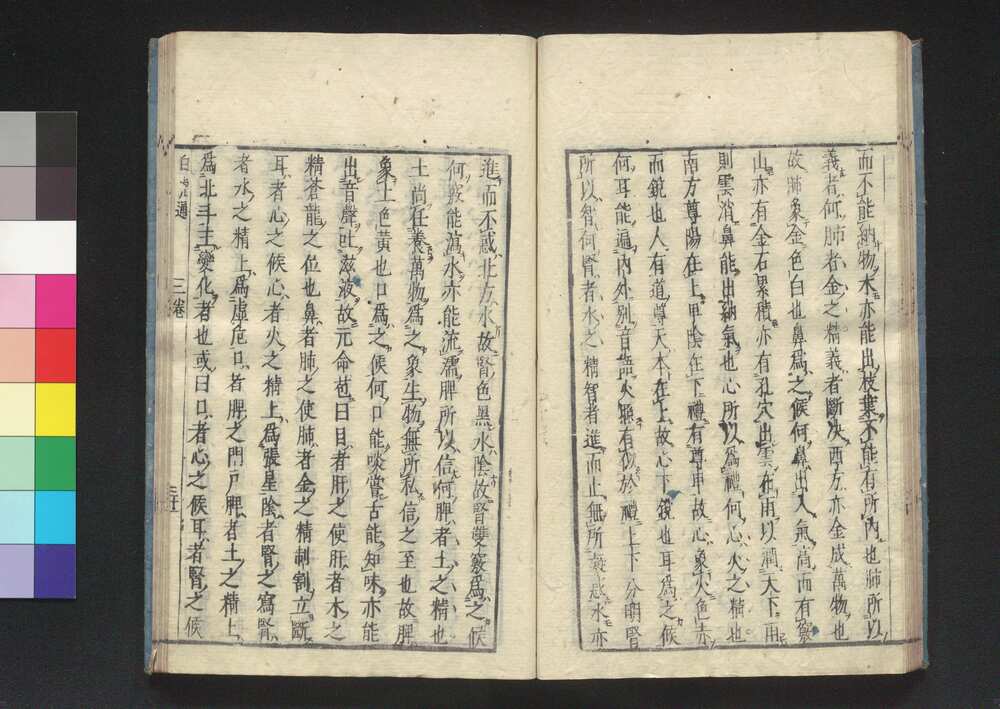 而不能納物木亦能出枝葉不能有所内也肺所以
義者何肺者金之精義者斷决西方亦金成萬物也
故肺象金色白也鼻爲之候何鼻出入氣高而有竅
山亦有金石累積亦有孔穴出雲布雨以潤天下雨
則雲消鼻能出納氣也心所以爲禮何心火之精也
南方尊陽在上卑陰在下禮有尊卑故心象火色赤
而鋭也人有道尊天本在上故心下鋭也耳爲之候
何耳能遍内外别音語火照有似於禮上下分明腎
所以智何腎者水之精智者進而止無所疑惑水亦
進而不惑北方水故腎色黑水陰故腎雙竅爲之候
何竅能瀉水亦能流濡脾所以信何脾者土之精也
土尚任養萬物爲之象生物無所私信之至也故脾
象土色黄也口爲之候何口能啖嘗舌能知味亦能
出音聲吐滋液故元命苞曰目者肝之使肝者木之
精蒼龍之位也鼻者肺之使肺者金之精制割立斷
耳者心之候心者火之精上爲張星陰者腎之寫腎
者水之精上爲虚危口者脾之門戸脾者土之精上
爲北斗主變化者也或曰口者心之候耳者腎之候
白虎通 三卷